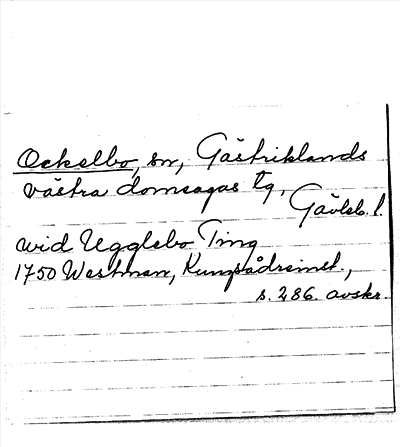 Ockelbo, sn, Gästriklands
västra domsagas tg,
Gävleb. l.
wid Ugglebo Ting
1750 Westman, Kungsådreinst.,
s. 286. avskr.